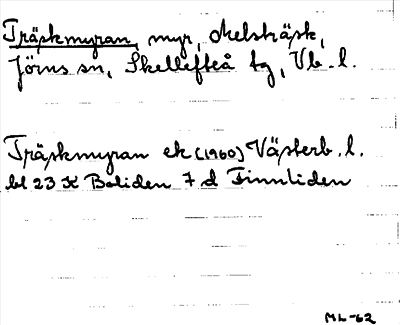 Träskmyran, myr, Melsträsk,
Jörns sn, Skellefteå tg, Vb. l.
Träskmyran ek (1960) Västerb. l.
bl 23 K Boliden 7 d Finnliden
ML-62